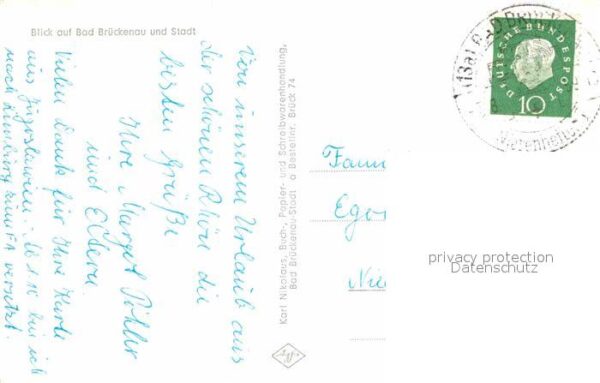 Blick auf Bad Brückenau und Stadt
Von unserem Urlaub aus
der schönen Rhön die
besten Grüße
Ihre Margot
und Eltern
Vielen Dank für Ihre Karte
aus Jugoslawien. Ab 1.10. bin ich
nach Limburg versetzt.
Karl Nikolaus, Buch-, Papier- und Schreibwarenhandlung,
Bad Brückenau-Stadt a Bestellnr. Brück 74
Agfa
DEUTSCHE BUNDESPOST
10
(13a) BAD
Fami
Egon
Nie
privacy protection
Datenschutz